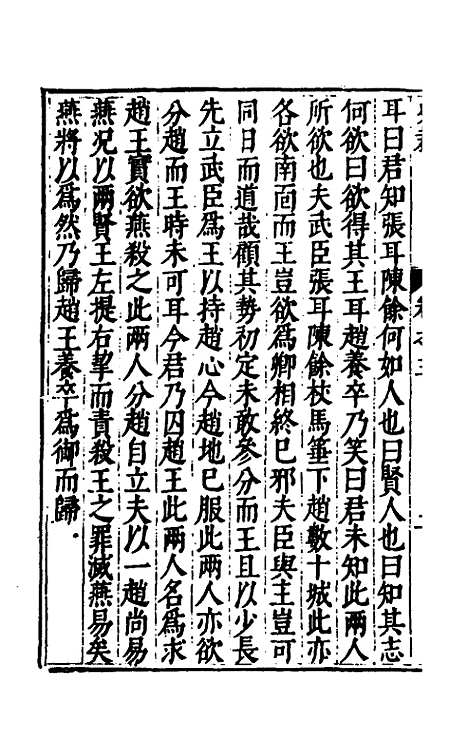 耳曰君知張耳陳餘何如人也曰賢人也曰知其志
何欲曰欲得其王耳趙養卒乃笑曰君未知此兩人
所欲也夫武臣張耳陳餘杖馬箠下趙數十城此亦
各欲南面而王豈欲爲卿相終已邪夫臣與主豈可
同日而道哉顧其勢初定未敢參分而王且以少長
先立武臣爲王以持趙心今趙地已服此兩人亦欲
分趙而王時未可耳今君乃囚趙王此兩人名爲求
趙王實欲燕殺之此兩人分趙自立夫以一趙尚易
燕况以兩賢王左提右挈而責殺王之罪滅燕易矣
燕將以爲然乃歸趙王養卒爲御而歸